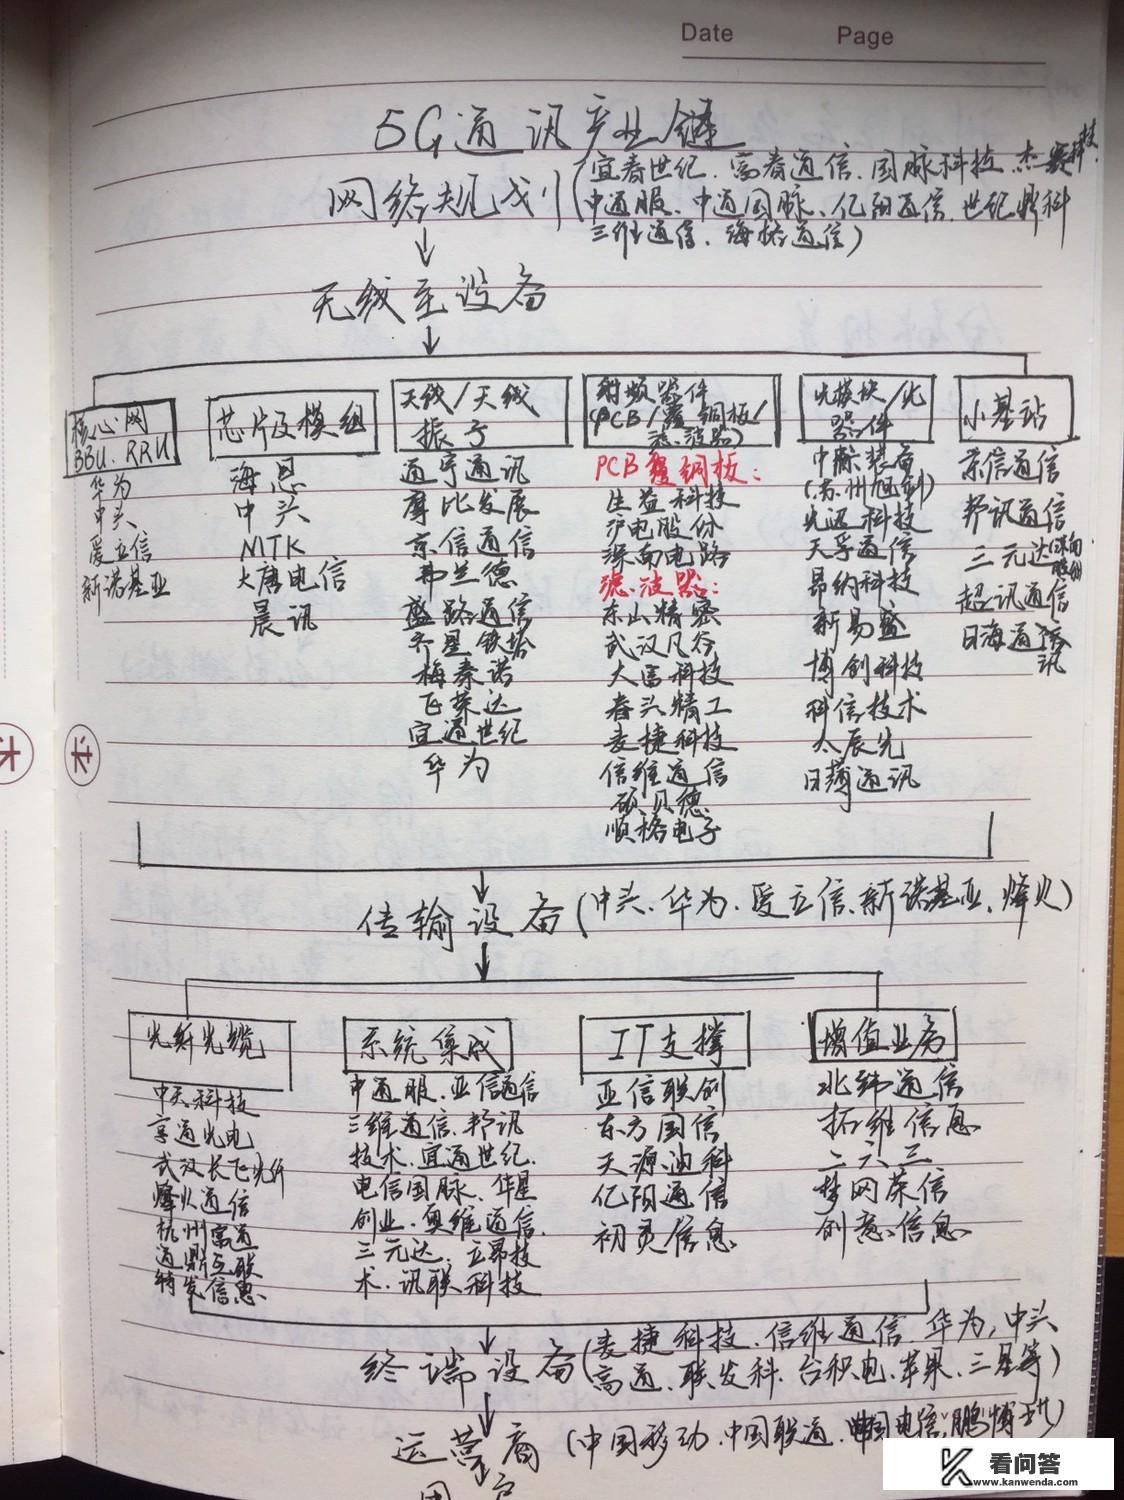 Date Page
5G通讯产业链
网络规划(宜春世纪、富春通信、国脉科技、杰赛科技、
中通服、中通国脉、亿阳通信、世纪鼎科
三维通信、海格通信)
无线主设备
核心网
BBU、RRU
华为
中兴
爱立信
新诺基亚
芯片及模组
海思
中兴
MTK
大唐电信
展讯
天线/天线
振子
通宇通讯
摩比发展
京信通信
弗兰德
盛路通信
齐星铁塔
梅泰诺
飞荣达
宜通世纪
华为
射频器件
(PCB/覆铜板/
滤波器)
PCB覆铜板:
生益科技
沪电股份
深南电路
滤波器:
东山精密
武汉凡谷
大富科技
春兴精工
麦捷科技
信维通信
硕贝德
顺络电子
光模块/光
器件
中际装备
(苏州旭创)
光迅科技
天孚通信
昂纳科技
新易盛
博创科技
科信技术
太辰光
日海通讯
小基站
京信通信
邦讯通信
三元达
超讯通信
日海通讯
传输设备(中兴、华为、爱立信、新诺基亚、烽火)
光纤光缆
中天科技
亨通光电
武汉长飞光纤
烽火通信
杭州富通
通鼎互联
特发信息
系统集成
中通服、亚信通信
三维通信、邦讯
技术、宜通世纪、
电信国脉、华星
创业、奥维通信、
三元达、立昂技
术、讯联科技
IT支撑
亚信联创
东方国信
天源迪科
亿阳通信
初灵信息
增值业务
北纬通信
拓维信息
二六三
梦网荣信
创意信息
终端设备(麦捷科技、信维通信、华为、中兴
高通、联发科、台积电、苹果、三星等)
运营商(中国移动、中国联通、中国电信、鹏博士)
用户
看问答
www.kanwenda.com